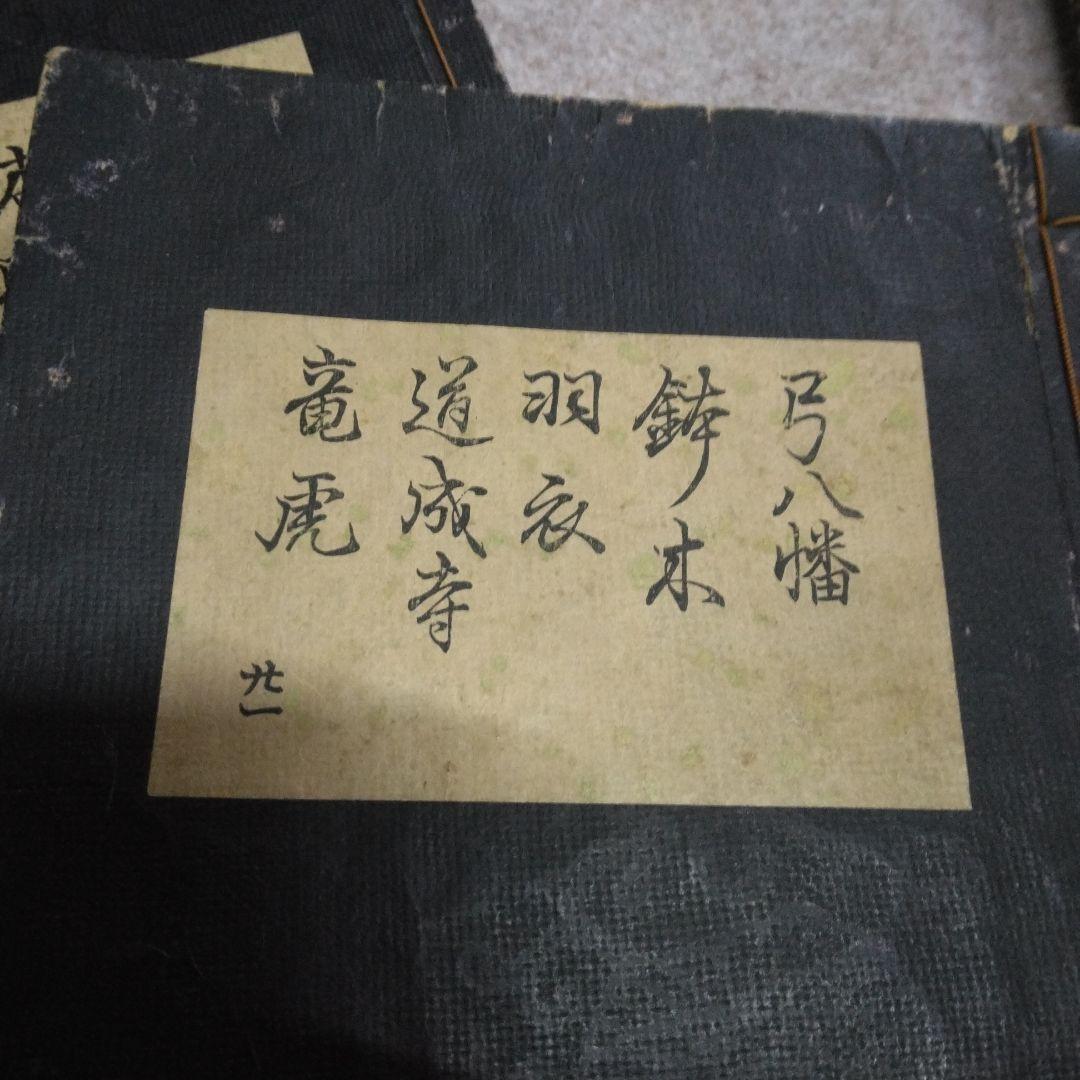 弓八幡
鉢ノ木
羽衣
道成寺
竜虎
廿一